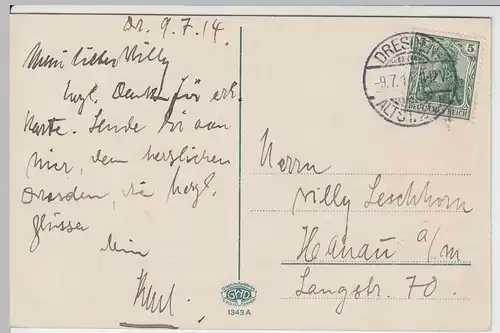 Dr. 9.7.14.
Mein lieber Willy
herzl. Dank für erh.
Karte. Sende Dir von
hier, dem herrlichen
Dresden, die herzl.
Grüsse
Dein
DRESDEN
-9.7.1
ALTST.
5
DEUTSCHES REICH
Herrn
Willy Leschhorn
Hanau a/m
Langstr. 70.
1343 A